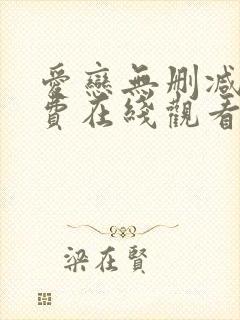 愛戀無刪減
費在綫觀看
梁在賢